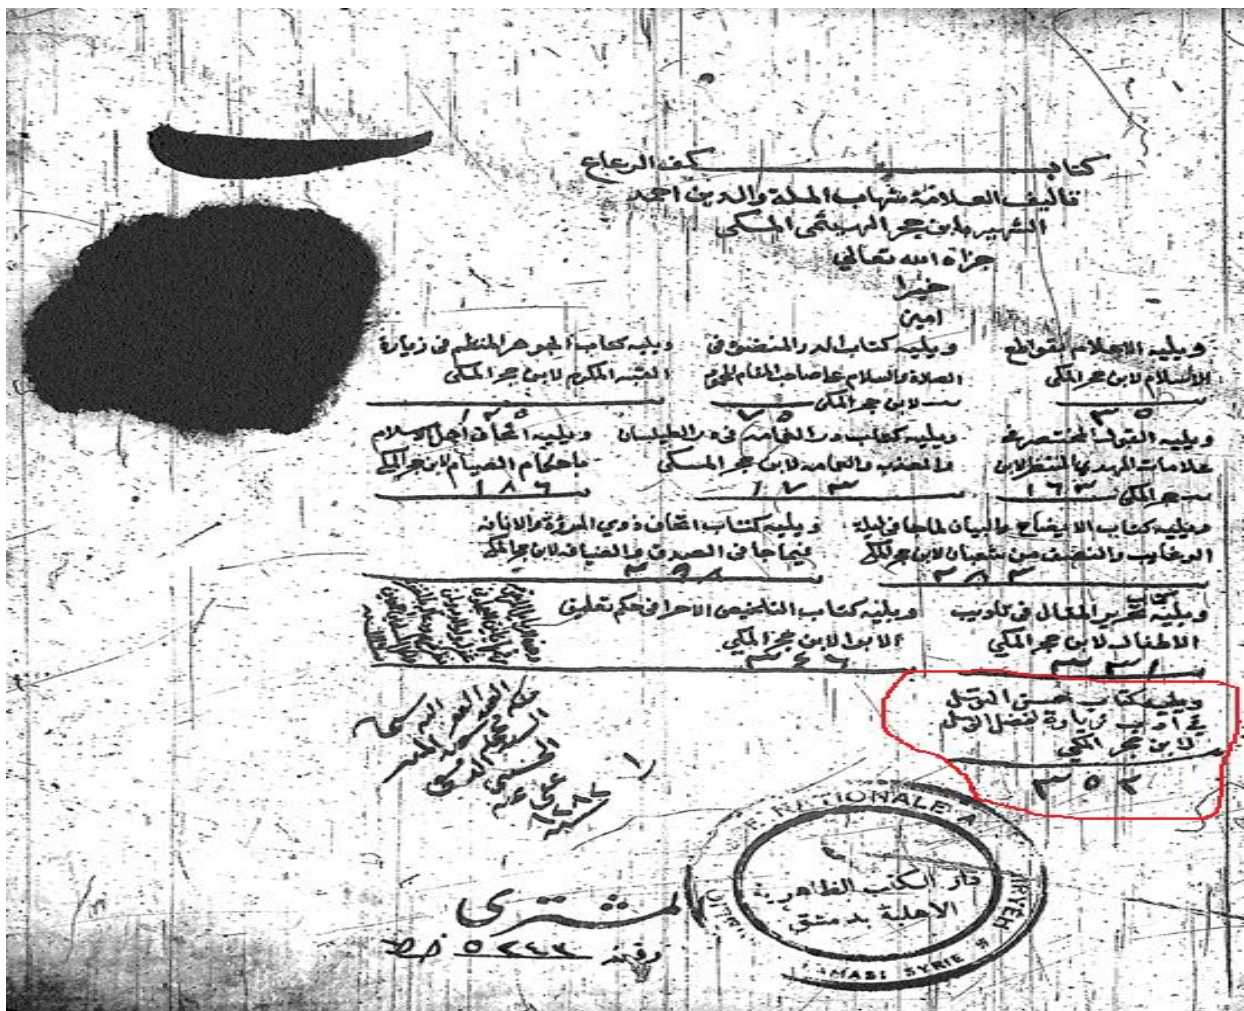 كتاب كف الرعاع
تأليف العلامة شهاب الملة والدين احمد
الشهير بابن حجر الهيتمى المكى
جزاه الله تعالي
خيرا
امين
ويليه الاعلام بقواطع
الاسلام لابن حجر المكى
٣٥
ويليه كتاب الدر المنضود فى
الصلاة والسلام على صاحب المقام المحمود
لابن حجر المكى
٧٥
ويليه كتاب الجوهر المنظم فى زيارة
القبر المكرم لابن حجر المكى
١٢٥
ويليه القول المختصر فى
علامات المهدي المنتظر لابن
حجر المكى ١٦٣
ويليه كتاب در الغمامه فى در الطيلسان
والعذبه والعمامه لابن حجر المكى
١٧٣
ويليه اتحاف اهل الاسلام
باحكام الصيام لابن حجر المكى
١٨٦
ويليه كتاب الايضاح والبيان لما جا فى ليلة
الرغايب والنصف من شعبان لابن حجر المكى
٢٨٣
ويليه كتاب اتحاف ذوي المروة والانافه
فيما جا فى الصدقه والضيافه لابن حجر المكى
٢٩٨
ويليه كتاب تحرير المقال فى تاديب
الاطفال لابن حجر المكي
٣٣١
ويليه كتاب التلخيص الاحرا فى حكم تعليق
الابرا لابن حجر المكي
٣٤٦
ويليه كتاب حسن التوسل
في اداب زيارة افضل الرسل
لابن حجر المكي
٣٥٢
دار الكتب الظاهرية
الاهلية بدمشق
NATIONALE
SYRIE
المشترى
٥٢٤٢